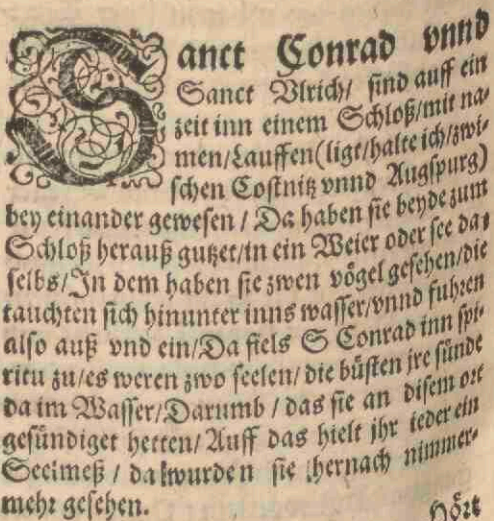 Sanct Conrad vnnd
Sanct Vlrich/ sind auff ein
zeit inn einem Schloß/mit na-
men/Lauffen(ligt/halte ich/zwi-
schen Costnitz vnnd Augspurg)
bey einander gewesen / Da haben sie beyde zum
Schloß herauß gutzet/in ein Weier oder see da-
selbs/In dem haben sie zwen vögel gesehen/die
tauchten sich hinunter inns wasser/vnnd fuhren
also auß vnd ein/Da fiels S Conrad inn spi-
ritu zu/es weren zwo seelen/ die büsten jre sünde
da im Wasser/Darumb / das sie an disem ort
gesündiget hetten/ Auff das hielt jhr ieder ein
Seelmeß / da wurden sie hernach nimmer-
mehr gesehen.
Hört